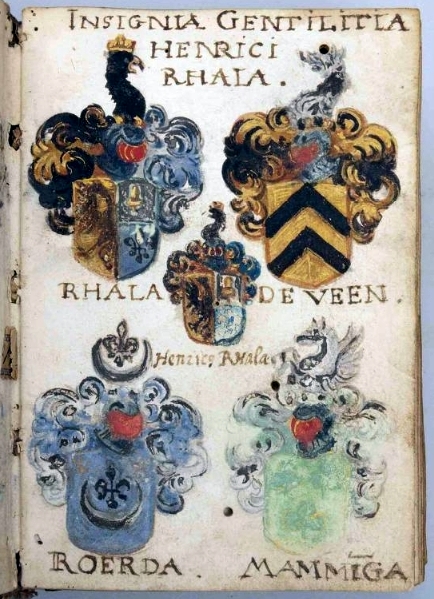 INSIGNIA GENTILITIA
HENRICI
RHALA.
RHALA
DE VEEN.
Henricus RHala
ROERDA.
MAMMIGA